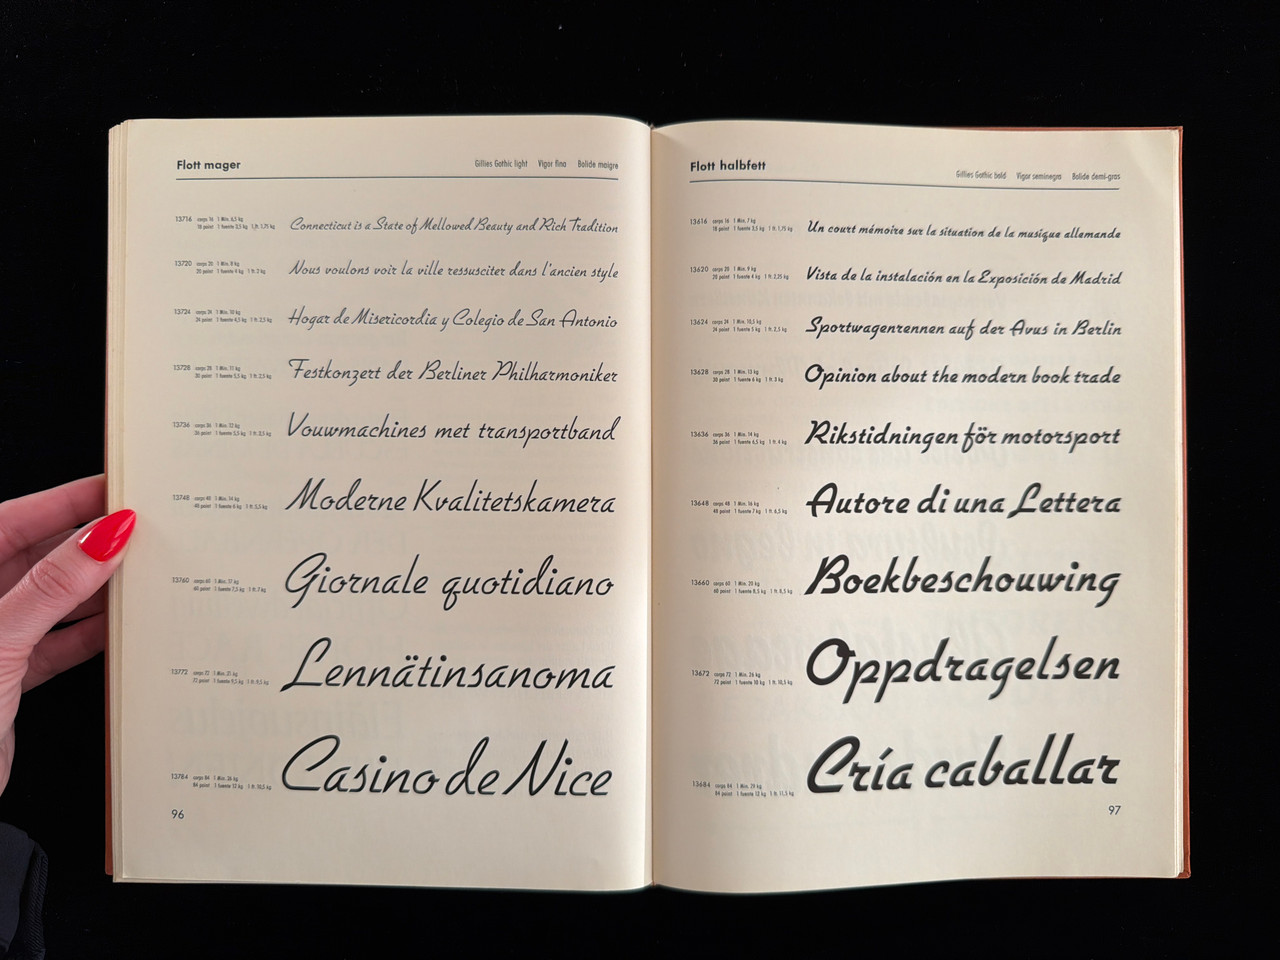 Flott mager
Gillies Gothic light Vigor fina Bolide maigre
13716 corps 16 1 Min. 6,5 kg
18 point 1 fuente 3,5 kg 1 ft 1,75 kg
Connecticut is a State of Mellowed Beauty and Rich Tradition
13720 corps 20 1 Min. 8 kg
20 point 1 fuente 4 kg 1 ft 2 kg
Nous voulons voir la ville ressusciter dans l'ancien style
13724 corps 24 1 Min. 10 kg
24 point 1 fuente 4,5 kg 1 ft 2,5 kg
Hogar de Misericordia y Colegio de San Antonio
13728 corps 28 1 Min. 11 kg
30 point 1 fuente 5,5 kg 1 ft 2,5 kg
Festkonzert der Berliner Philharmoniker
13736 corps 36 1 Min. 12 kg
36 point 1 fuente 5,5 kg 1 ft 3,5 kg
Vouwmachines met transportband
13748 corps 48 1 Min. 14 kg
48 point 1 fuente 6 kg 1 ft 5,5 kg
Moderne Kvalitetskamera
13760 corps 60 1 Min. 17 kg
60 point 1 fuente 7,5 kg 1 ft 7 kg
Giornale quotidiano
13772 corps 72 1 Min. 21 kg
72 point 1 fuente 9,5 kg 1 ft 9,5 kg
Lennätinsanoma
13784 corps 84 1 Min. 26 kg
84 point 1 fuente 12 kg 1 ft 10,5 kg
Casino de Nice
96
Flott halbfett
Gillies Gothic bold Vigor seminegra Bolide demi-gras
13616 corps 16 1 Min. 7 kg
18 point 1 fuente 3,5 kg 1 ft 1,75 kg
Un court mémoire sur la situation de la musique allemande
13620 corps 20 1 Min. 9 kg
20 point 1 fuente 4 kg 1 ft 2,25 kg
Vista de la instalación en la Exposición de Madrid
13624 corps 24 1 Min. 10,5 kg
24 point 1 fuente 5 kg 1 ft 2,5 kg
Sportwagenrennen auf der Avus in Berlin
13628 corps 28 1 Min. 13 kg
30 point 1 fuente 6 kg 1 ft 3 kg
Opinion about the modern book trade
13636 corps 36 1 Min. 14 kg
36 point 1 fuente 6,5 kg 1 ft 4 kg
Rikstidningen för motorsport
13648 corps 48 1 Min. 16 kg
48 point 1 fuente 7 kg 1 ft 6,5 kg
Autore di una Lettera
13660 corps 60 1 Min. 20 kg
60 point 1 fuente 8,5 kg 1 ft 8,5 kg
Boekbeschouwing
13672 corps 72 1 Min. 26 kg
72 point 1 fuente 10 kg 1 ft 10,5 kg
Oppdragelsen
13684 corps 84 1 Min. 29 kg
84 point 1 fuente 12 kg 1 ft 11,5 kg
Cría caballar
97